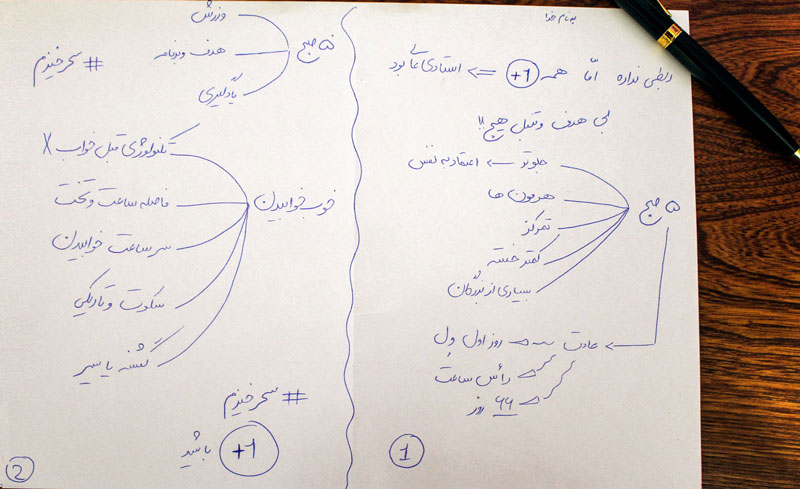 به نام خدا
ربطی نداره اما همه +1 <= استادی عالی بود
بی هدف و تنبل هیچ!!
۵ صبح
جلوتر <- اعتماد به نفس
هورمون ها
تمرکز
کمتر خسته
بسیاری از بزرگان
عادت
روز اول ول
رأس ساعت
۶۶ روز
1
۵ صبح
ورزش
هدف و برنامه
یادگیری
# سحرخیزم
خوب خوابیدن
تکنولوژی قبل خواب X
فاصله ساعت و تخت
سر ساعت خوابیدن
سکوت و تاریکی
گشنه یا سیر
# سحرخیزم
+1 باشید
2